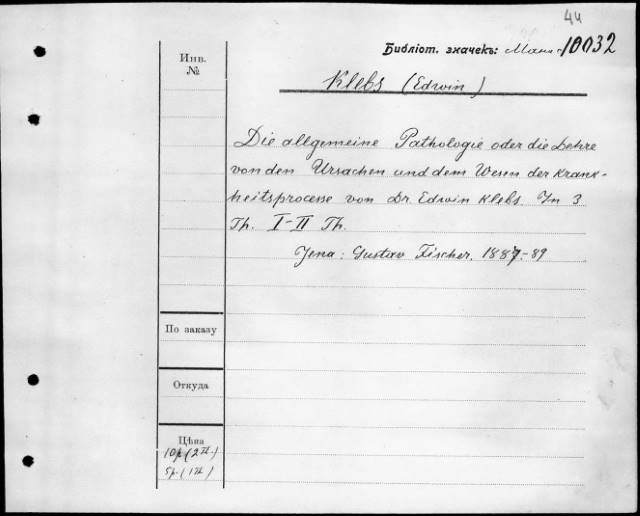 44
Библіот. значекъ: 10032
Инв.
№
Klebs (Edwin)
Die allgemeine Pathologie oder die Lehre
von den Ursachen und dem Wesen der Krank-
heitsprocesse von Dr. Edwin Klebs. In 3
Th. I-II Th.
Jena: Gustav Fischer. 1887-89
По заказу
Откуда
Цѣна
10р (2 Th.)
5р. (1 Th.)